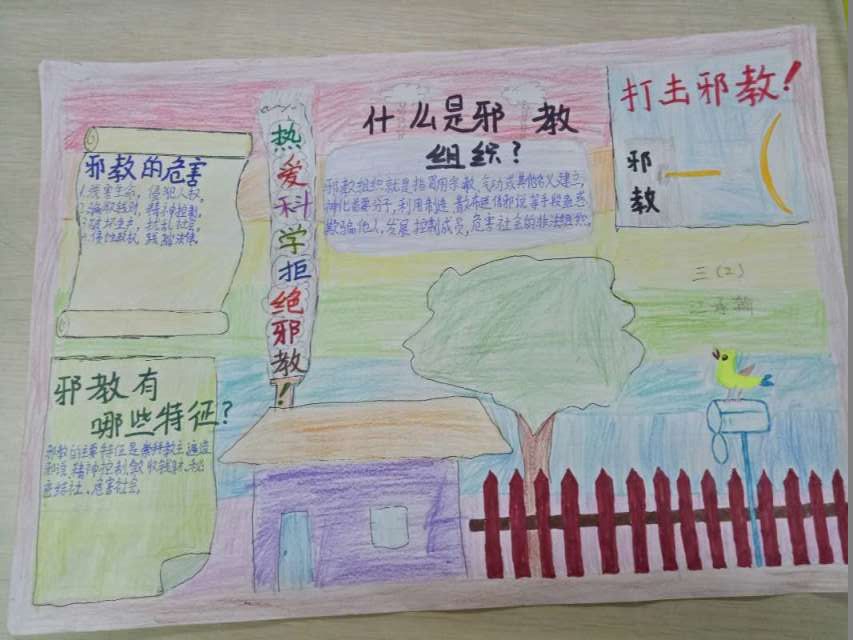 邪教的危害
1.残害生命，侵犯人权，
2.骗取钱财，精神控制，
3.破坏生产，扰乱社会，
4.侵蚀政权，践踏法律。
热爱科学拒绝邪教！
什么是邪教
组织？
邪教组织就是指冒用宗教、气功或其他名义建立，
神化首要分子，利用制造、散布迷信邪说等手段蛊惑
欺骗他人，发展控制成员，危害社会的非法组织。
打击邪教！
邪
教
三（2）
邪教有
哪些特征？
邪教的主要特征是崇拜教主、编造
邪说、精神控制、敛收钱财、秘
密结社、危害社会。